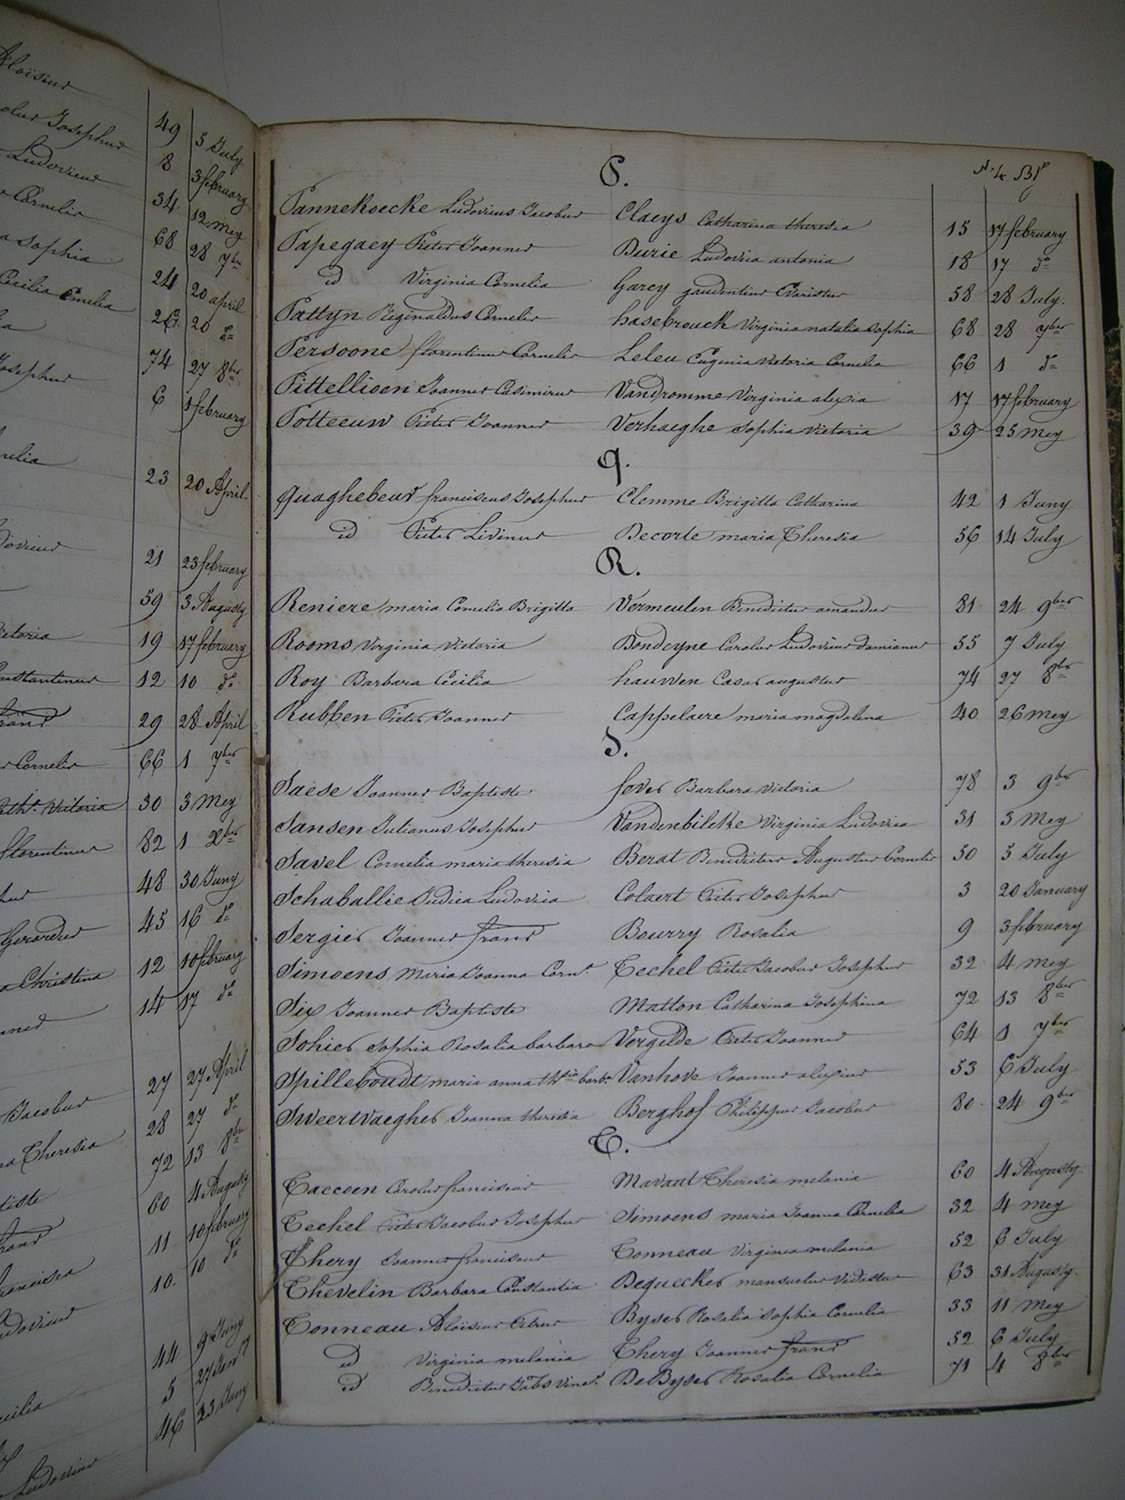 Aloïsius 49 5 July
Josephus 8 3 february
Ludovicus 34 12 mey
Cornelis 68 28 7ber
sophia 24 20 april
Cecilia Emelia 26 20 do
74 27 8ber
Josephus 6 1 february
23 20 April
21 23 february
59 3 Augusty
19 17 february
Constantinus 12 10 do
29 28 April
Cornelis 66 1 7ber
Victoria 30 3 Mey
florentinus 82 1 Xber
48 30 Juny
Gerardus 45 16 do
Christina 12 10 february
14 17 do
27 27 April
Jacobus 28 27 do
Theresia 72 13 8ber
60 4 Augusty
11 10 february
10 10 do
44 9 Juny
5 27
46 23 Juny
Ludovicus
P. N. 4 Bl
Pannekoecke Ludovicus Jacobus Claeys Catharina theresia 15 17 february
Papegaey Pieter Joannes Durie Ludovica antonia 18 17 do
id Virginia Cornelia Garey gaudentius Evaristus 58 28 July.
Pattyn Reginaldus Cornelis hasebrouck Virginia natalia sophia 68 28 7ber
Persoone florentinus Cornelis Leleu Eugenia Victoria Cornelia 66 1 do
Pittellioen Joannes Casimirus Vandromme Virginia alexia 17 17 february
Potteeuw Pieter Joannes Verhaeghe Sophia Victoria 39 25 Mey
q.
quaghebeur franciscus Josephus Clemme Brigitta Catharina 42 1 Juny
id Pieter Livinus Decorte maria Theresia 56 14 July
R.
Reniere maria Cornelia Brigitta Vermeulen Benedictus amandus 81 24 9ber
Rooms Virginia Victoria Dondeyne Carolus Ludovicus Damianus 55 7 July
Roy Barbara Cecilia hauwen Casar augustus 74 27 8ber
Rubben Pieter Joannes Cappelaere maria magdalena 40 26 mey
S.
Saese Joannes Baptiste fever Barbara Victoria 78 3 9ber
Sansen Julianus Josephus Vandenbilcke Virginia Ludovica 31 3 Mey
Savel Cornelia maria theresia Berat Benedictus Augustus Cornelis 50 5 July
Schaballie Judica Ludovica Colaert Pieter Josephus 3 20 January
Sergier Joannes frans Bourry Rosalia 9 3 february
Simoens Maria Joanna Corn. Techel Pieter Jacobus Josephus 32 4 mey
Six Joannes Baptiste Matton Catharina Josephina 72 13 8ber
Sohier Sophia Rosalia barbara Vergelde Pieter Joannes 64 1 7ber
Spilleboudt maria anna thsia barb. Vanhove Joannes alexius 53 6 July
Sweertvaegher Joanna theresia Berghof Philippus Jacobus 80 24 9ber
T.
Taccoen Carolus franciscus Mavaut Theresia melania 60 4 Augusty.
Techel Pieter Jacobus Josephus Simoens maria Joanna Cornelia 32 4 mey
Thery Joannes franciscus Tonneau Virginia melania 52 6 July
Thevelin Barbara Constantia Dequecker mansuetus Vedastus 63 31 Augusty.
Tonneau Aloïsius Petrus Byser Rosalia sophia Cornelia 33 11 Mey
id Virginia melania Thery Joannes frans 52 6 July
id Benedictus DeByser Rosalia Cornelia 71 4 8ber